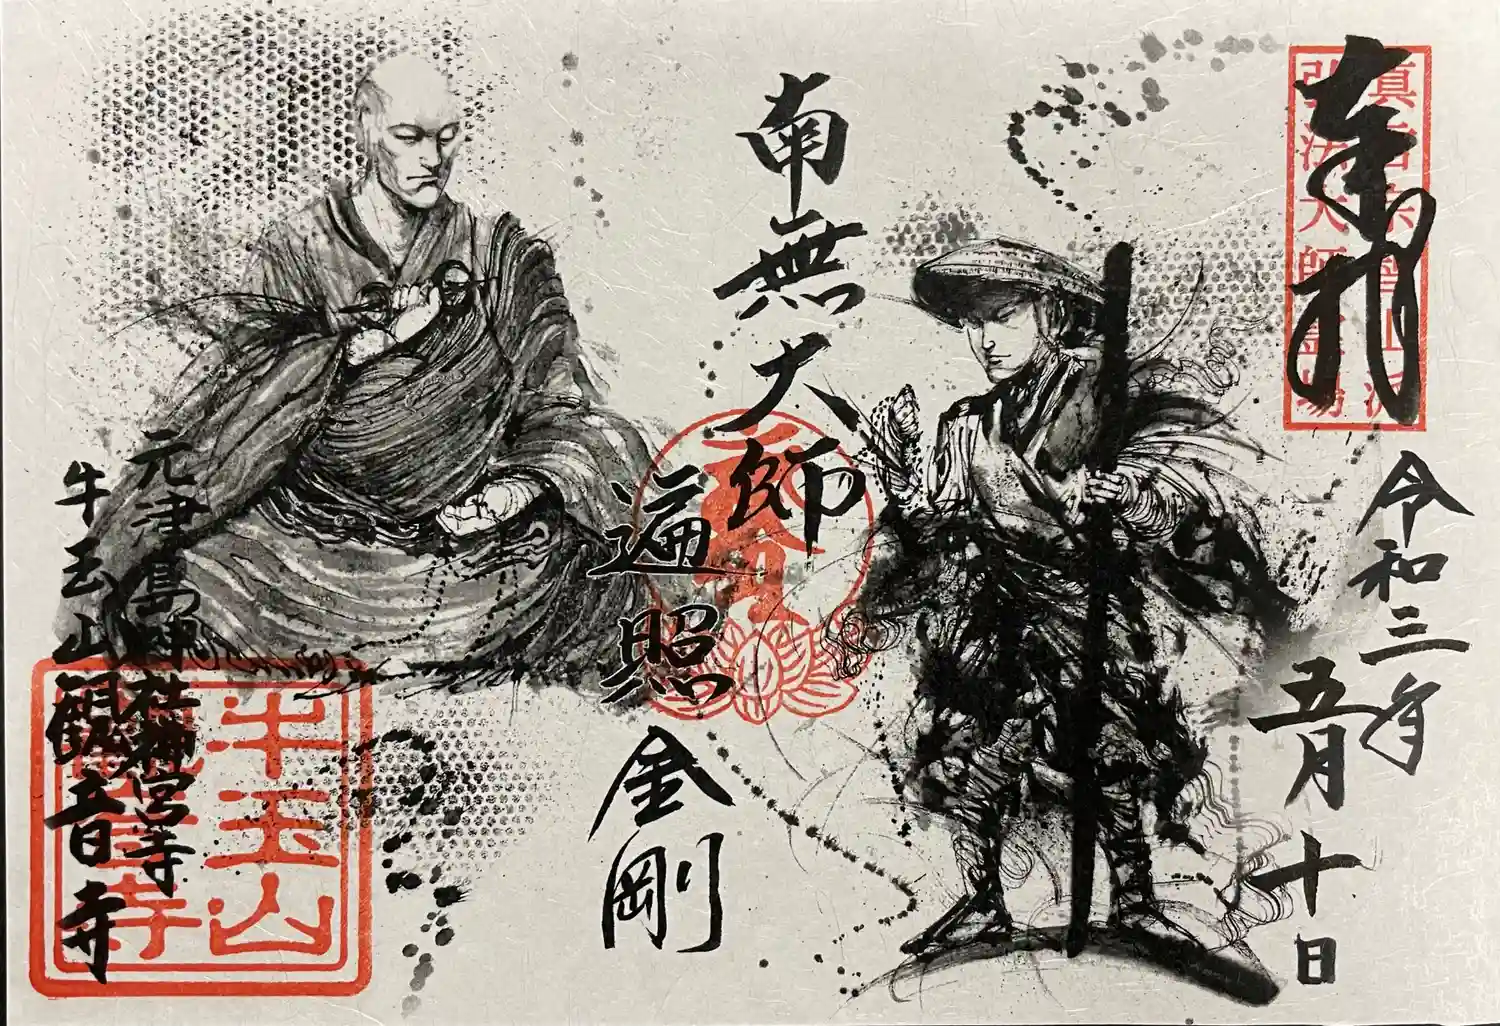 奉拝
真言宗智山派
弘法大師霊場
令和三年
五月十日
南無大師
遍照
金剛
元津島神社神宮寺
牛玉山観音寺
牛玉山
観音寺